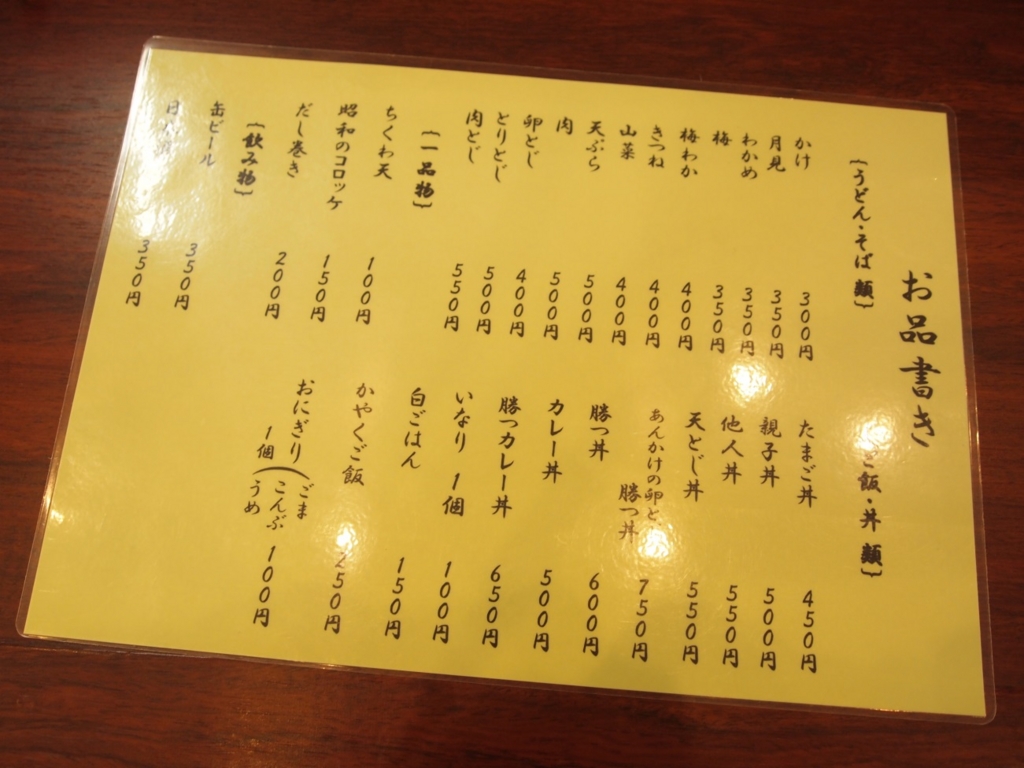 お品書き
〔うどん・そば 類〕
かけ 300円
月見 350円
わかめ 350円
梅 350円
梅わか 400円
きつね 400円
山菜 400円
天ぷら 500円
肉 500円
卵とじ 400円
とりとじ 500円
肉とじ 550円
〔一品物〕
ちくわ天 100円
昭和のコロッケ 150円
だし巻き 200円
〔飲み物〕
缶ビール 350円
350円
ご飯・丼 類〕
たまご丼 450円
親子丼 500円
他人丼 550円
天とじ丼 550円
あんかけの卵と、
勝つ丼 750円
勝つ丼 600円
カレー丼 500円
勝つカレー丼 650円
いなり 1個 100円
白ごはん 150円
かやくご飯 250円
おにぎり(ごま
こんぶ
うめ
1個 100円